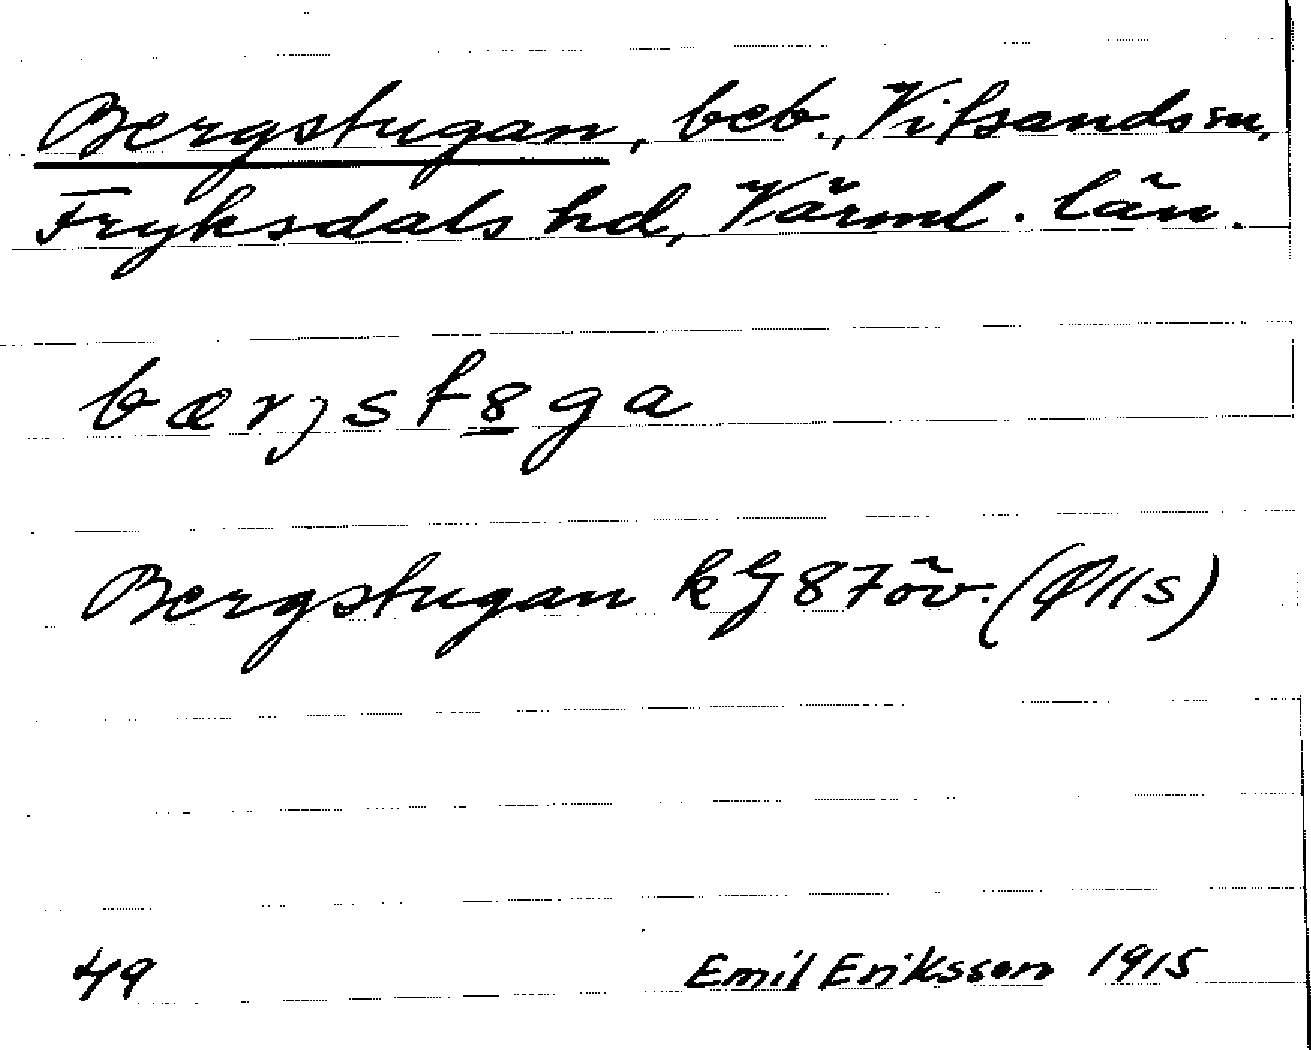 Bergstugan, beb., Vitsands sn,
Fryksdals hd, Värml. län.
bærjst8ga
Bergstugan kg 87 öv. (Ølls)
49 Emil Eriksson 1915